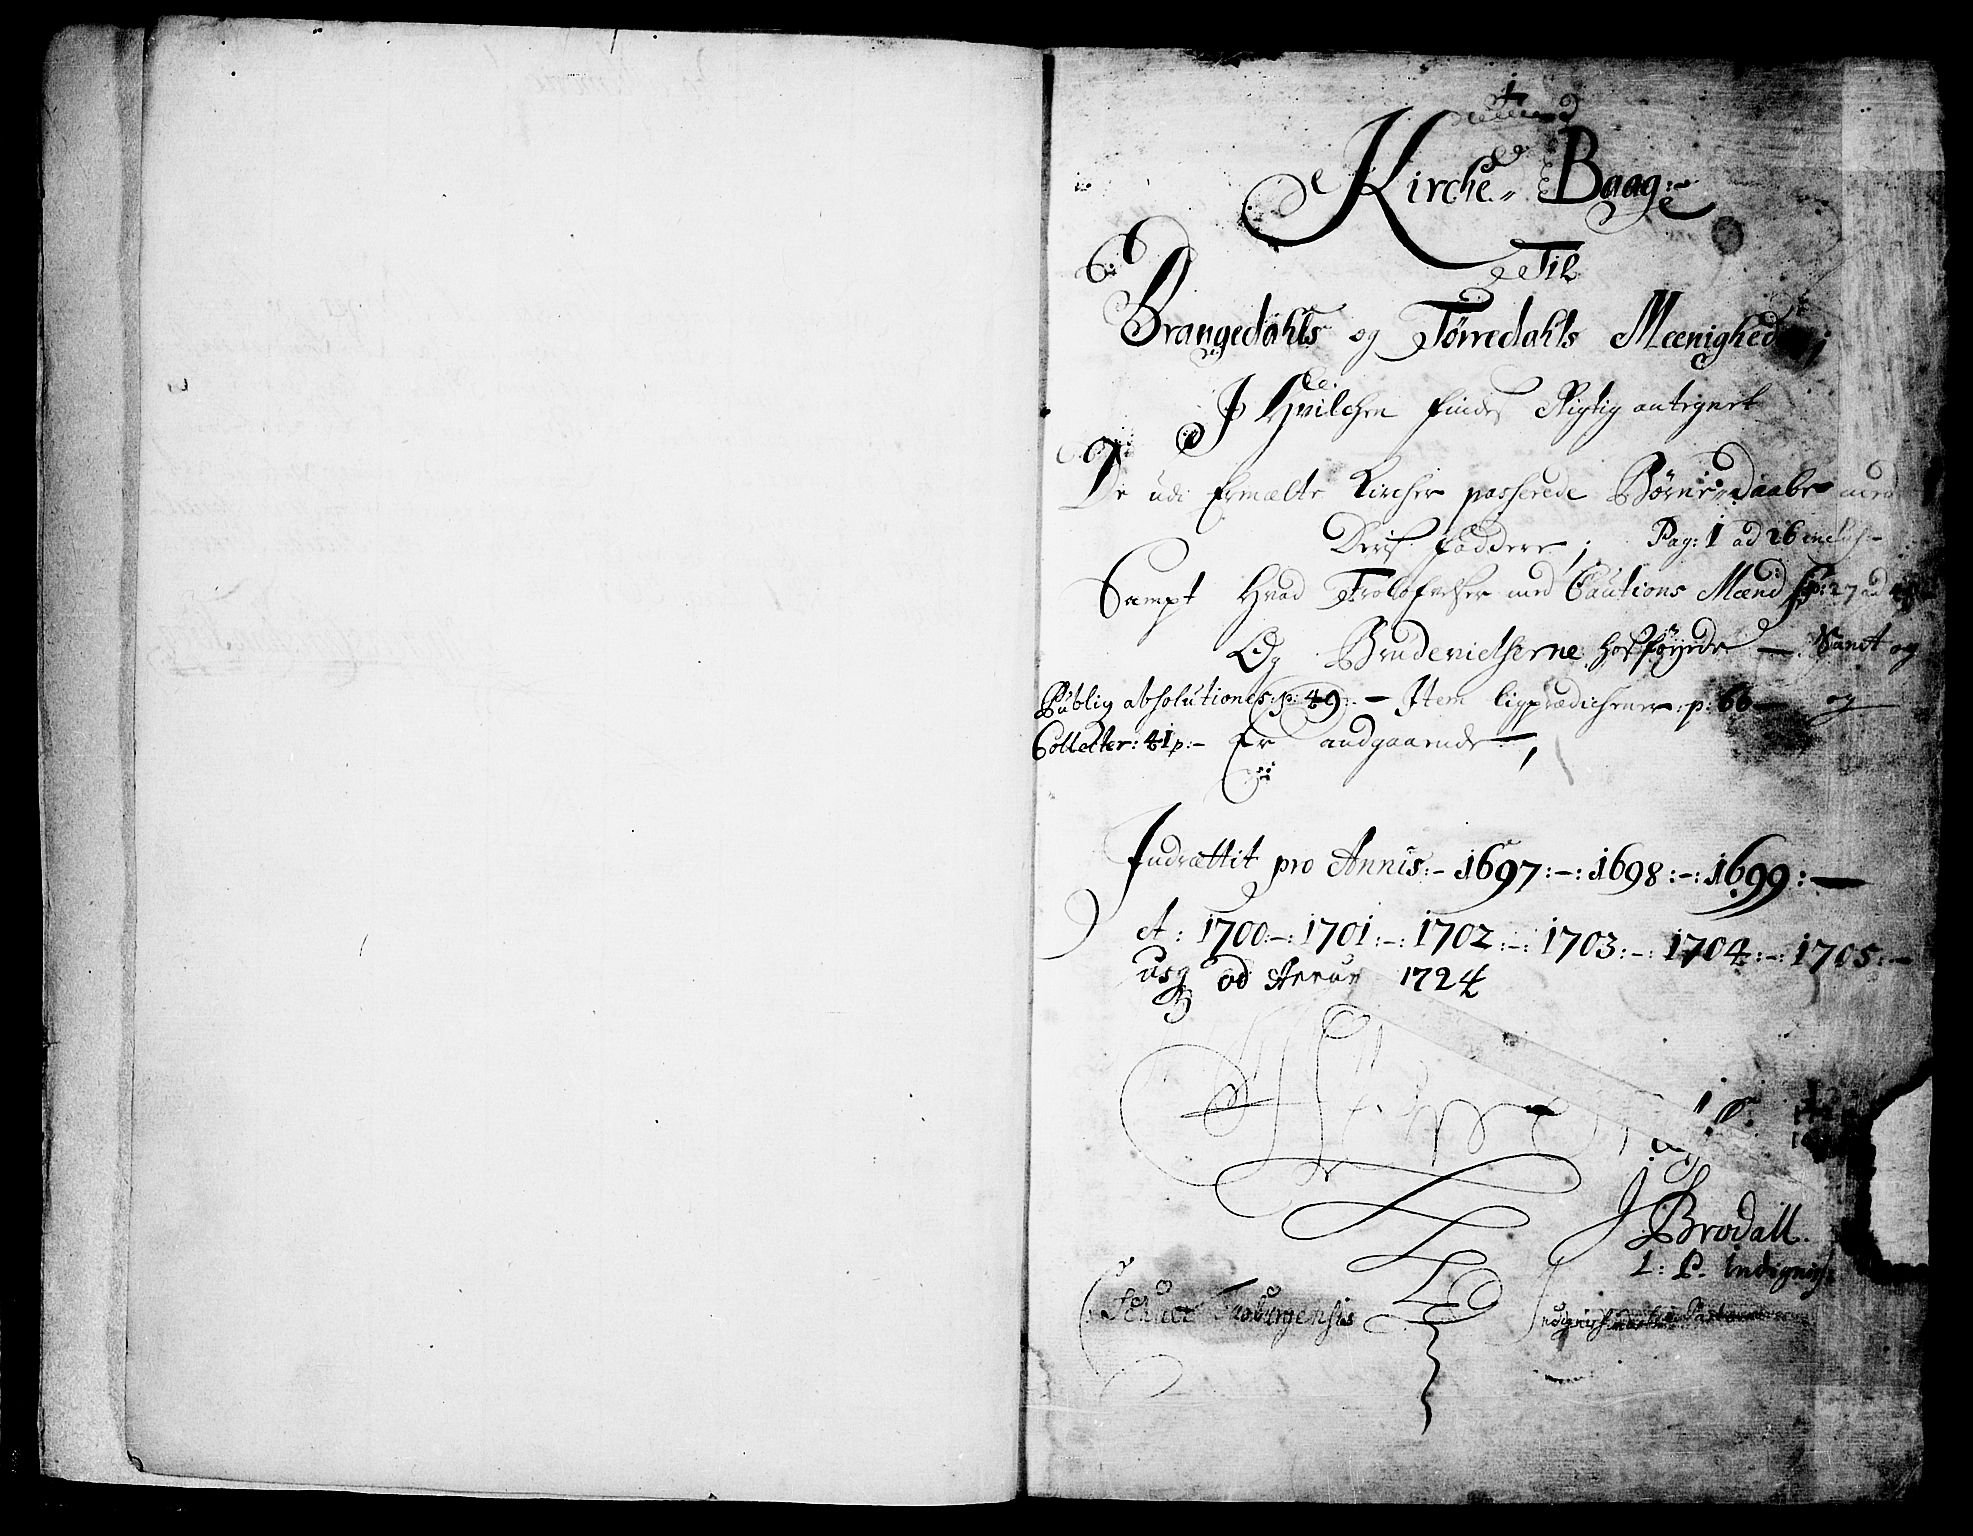 Kirche-Baag
Til
Drangedahls og Tørredahls Meenighed
J Hvilchen findes Rigtig antegnet
De udi Ermælte Kircher passerede Børne-Daabe med
Deris faddere; Pag: 1 ad 26 incl:
Sampt Hvad Trolofvelser med Cautions Mænd p: 27 ad
Og Brudevielserne hosføyede — Samt og
Publiq absolutiones: p: 49. — Item ligprædichener: p: 66 — og
Collecter: 41 p:- Er andgaaende —,
Indrættit pro Annis:- 1697:-: 1698:-: 1699:—
et: 1700:-: 1701:-: 1702:-: 1703:-: 1704:-: 1705:-
usq ad Annum 1724
J Brodall.
L: P. Indigniss: